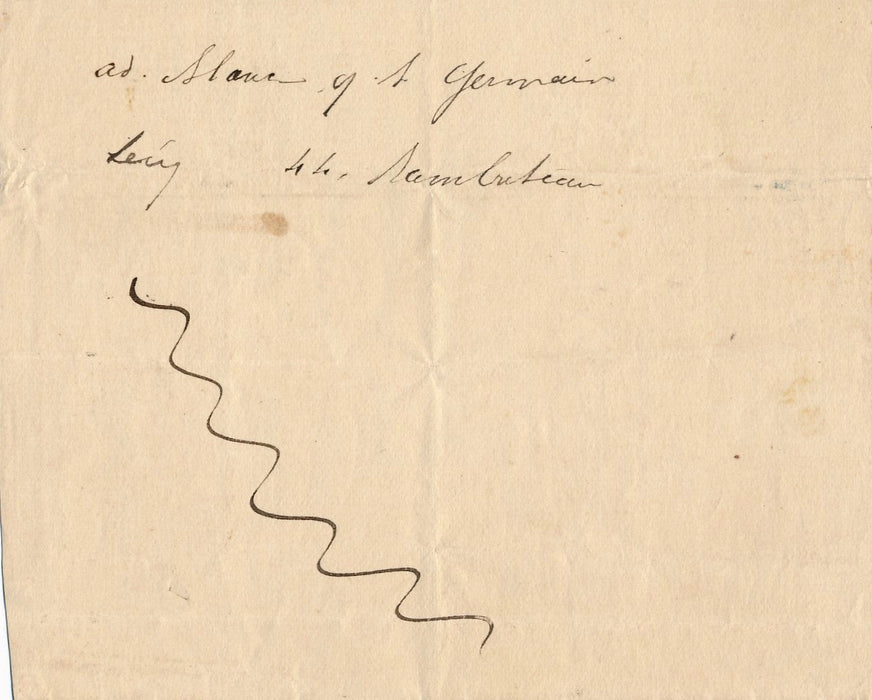 ad. Blanc 9. St Germain
Levy 44. Rambuteau